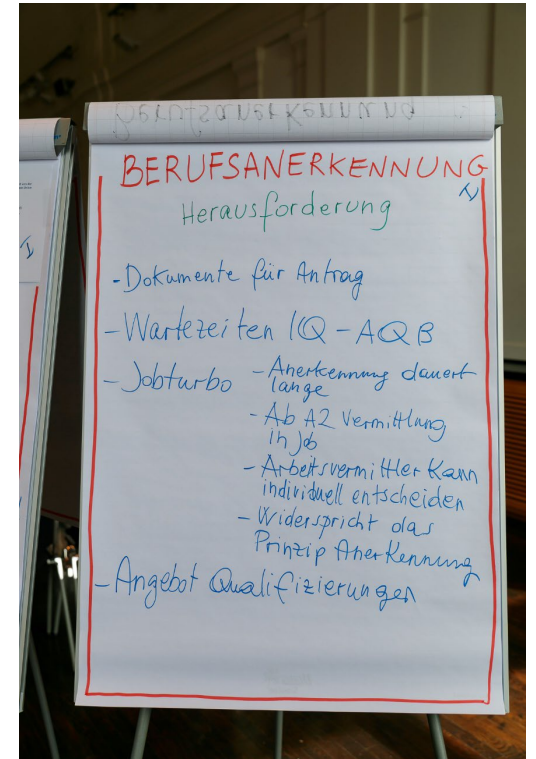 Berufsanerkennung
BERUFSANERKENNUNG
Herausforderung
- Dokumente für Antrag
- Wartezeiten IQ - AQB
- Jobturbo - Anerkennung dauert
lange
- Ab A2 Vermittlung
in Job
- Arbeitsvermittler kann
individuell entscheiden
- Widerspricht das
Prinzip Anerkennung
- Angebot Qualifizierungen